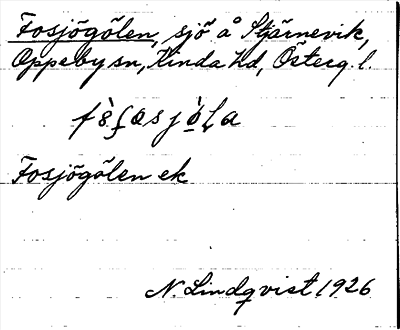 Fosjögölen, sjö å Stjärnevik,
Oppeby sn, Kinda hd, Österg. l.
Fosjögölen ek
N. Lindqvist 1926